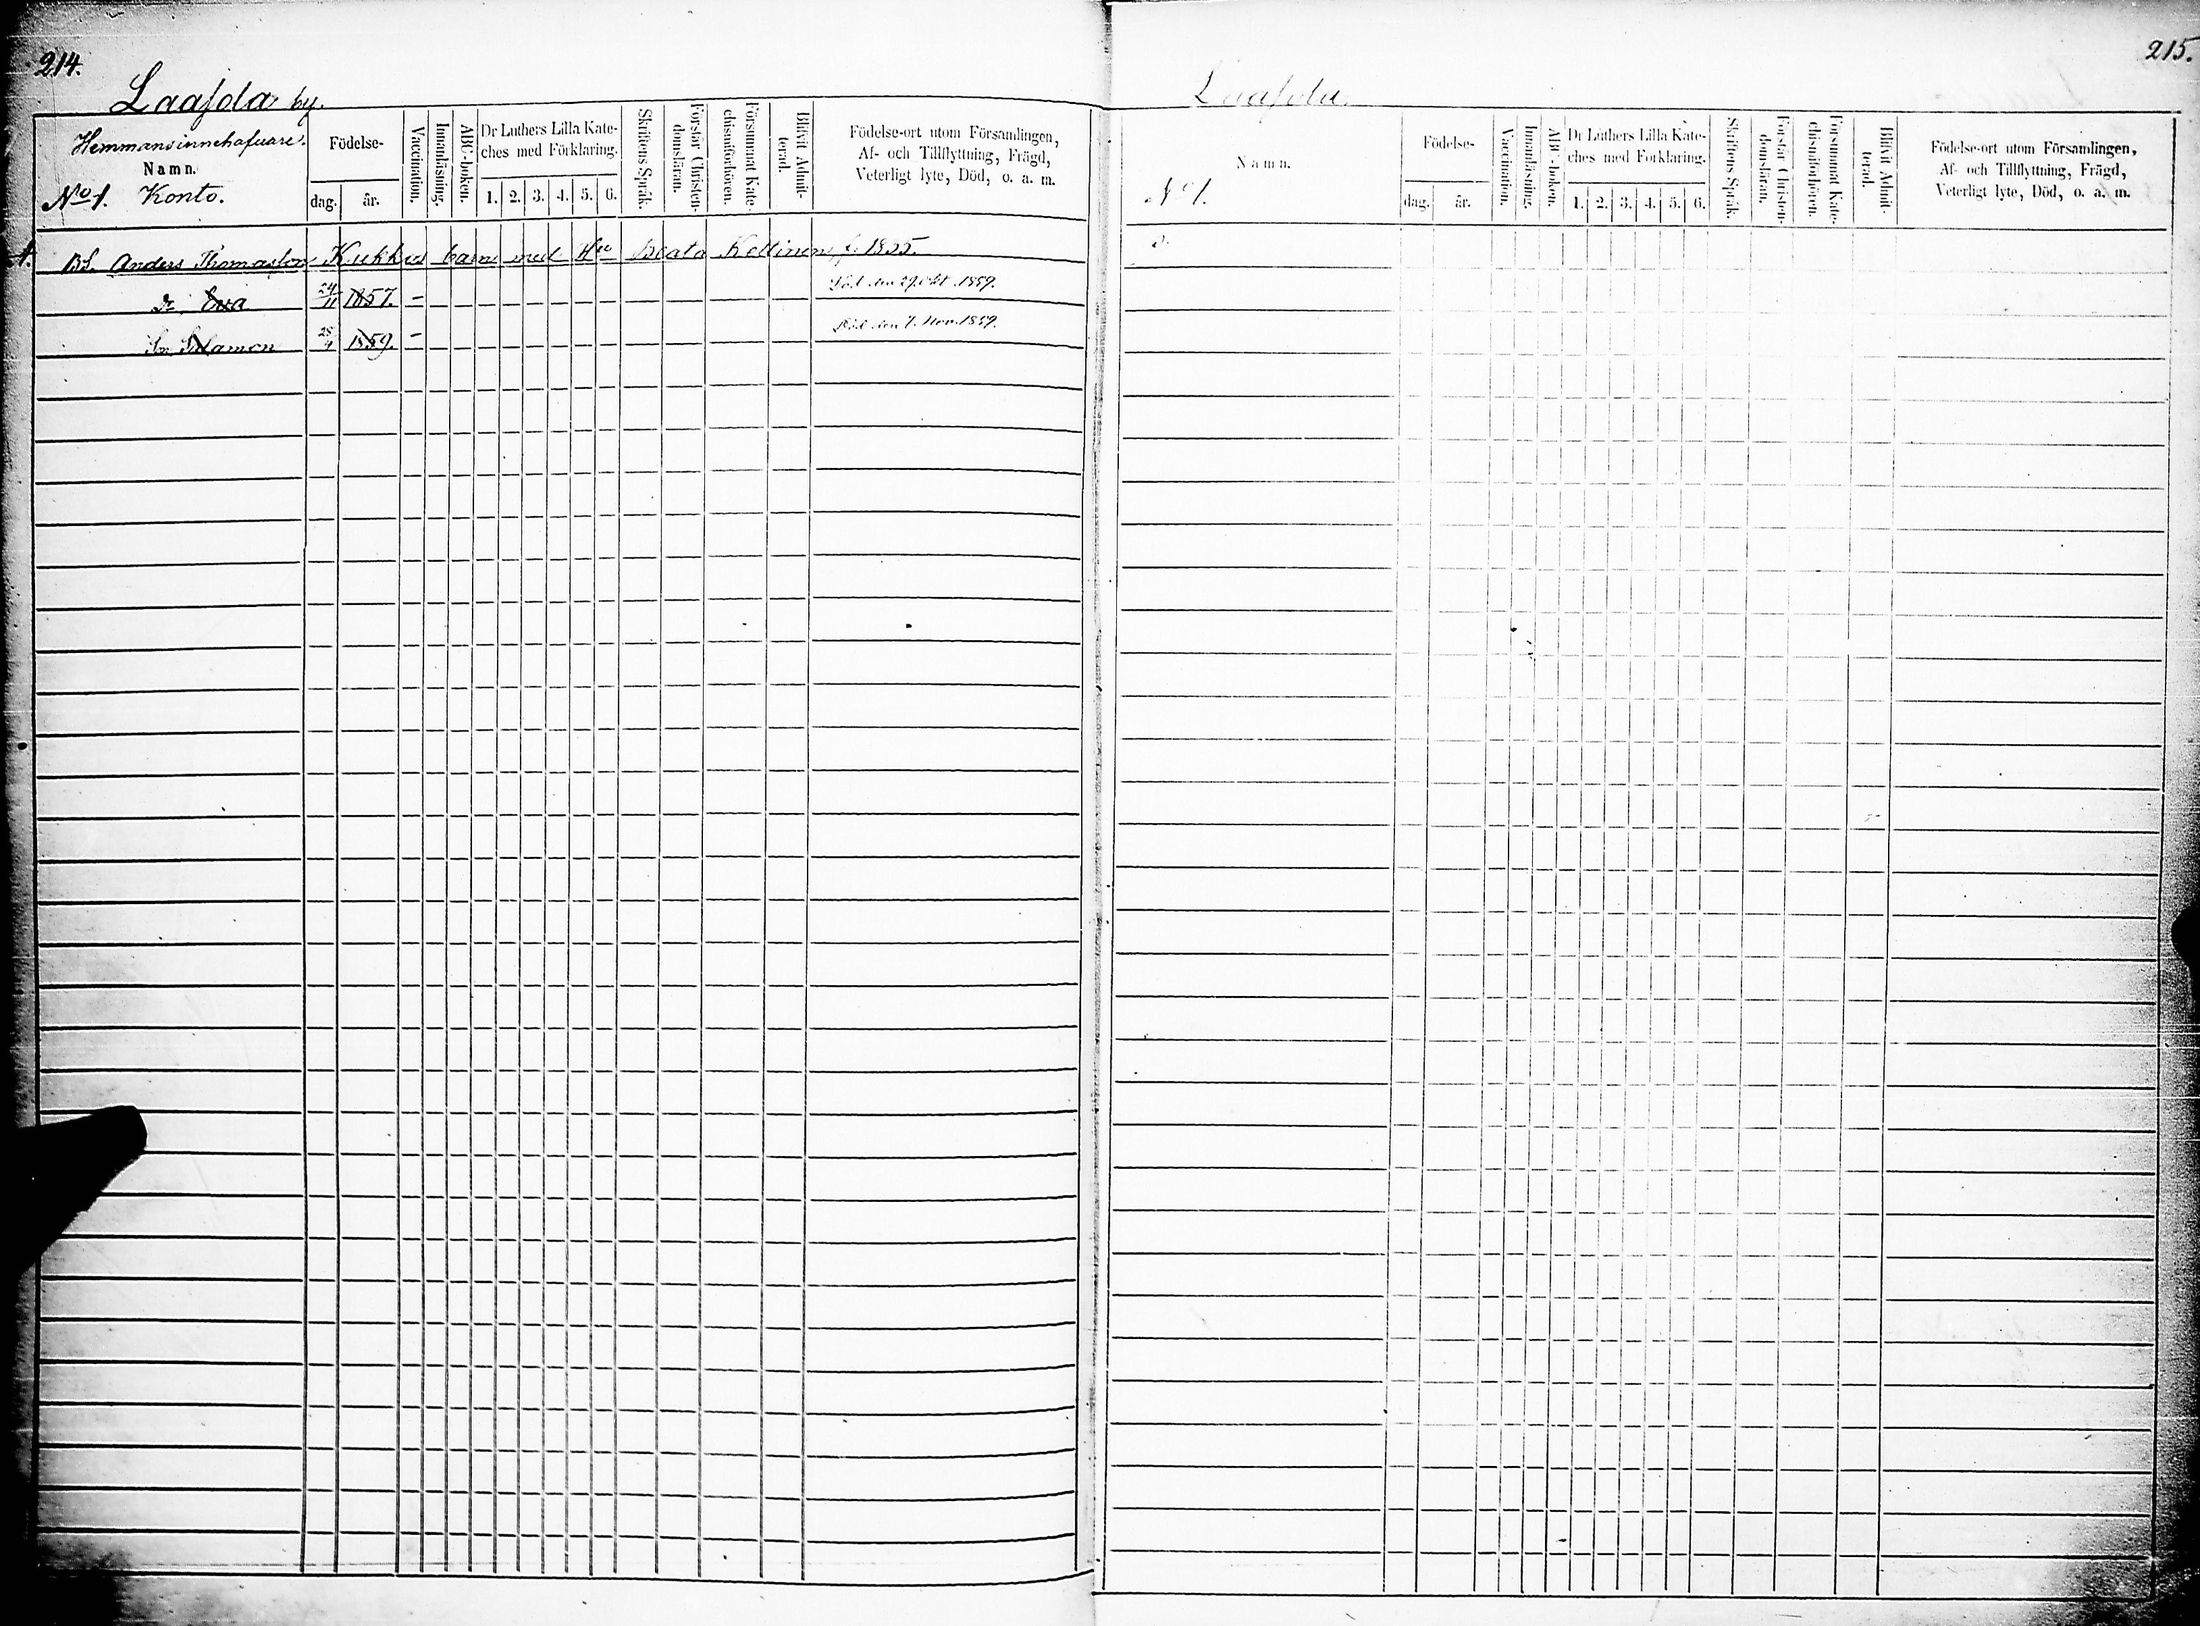 214.
Laasola by.
Hemmansinnehafvare.
Namn.
No 1. Konto.
Födelse-
dag.
år.
Vaccination.
Innanläsning.
ABC-boken.
Dr Luthers Lilla Kate-
ches med Förklaring.
1. 2. 3. 4. 5. 6.
Skriftens Språk.
Förstår Christen-
domsläran.
Försummat Kate-
chismiförhören.
Blifvit Admit-
terad.
Födelse-ort utom Församlingen,
Af- och Tillflyttning, Frägd,
Veterligt lyte, Död, o. a. m.
1. Bd. Anders Thomasson Kukkos barn med Hu Beata f. 1835.
Dr Eva 24/11 1857. – Död den 29. Okt. 1859.
Sn Salamon 1859. – Död den 7. Nov. 1859.
215.
Laasola
Namn.
No 1.
Födelse-
dag.
år.
Vaccination.
Innanläsning.
ABC-boken.
Dr Luthers Lilla Kate-
ches med Förklaring.
1. 2. 3. 4. 5. 6.
Skriftens Språk.
Förstår Christen-
domsläran.
Försummat Kate-
chismiförhören.
Blifvit Admit-
terad.
Födelse-ort utom Församlingen,
Af- och Tillflyttning, Frägd,
Veterligt lyte, Död, o. a. m.